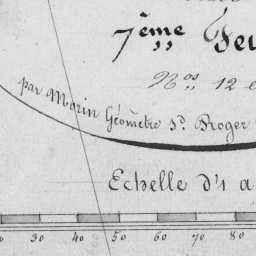 7ème Feu
Nos 12 e
par Morin Géomètre Sr. Roger
Echelle d'1 a
30 40 50 60 70 80